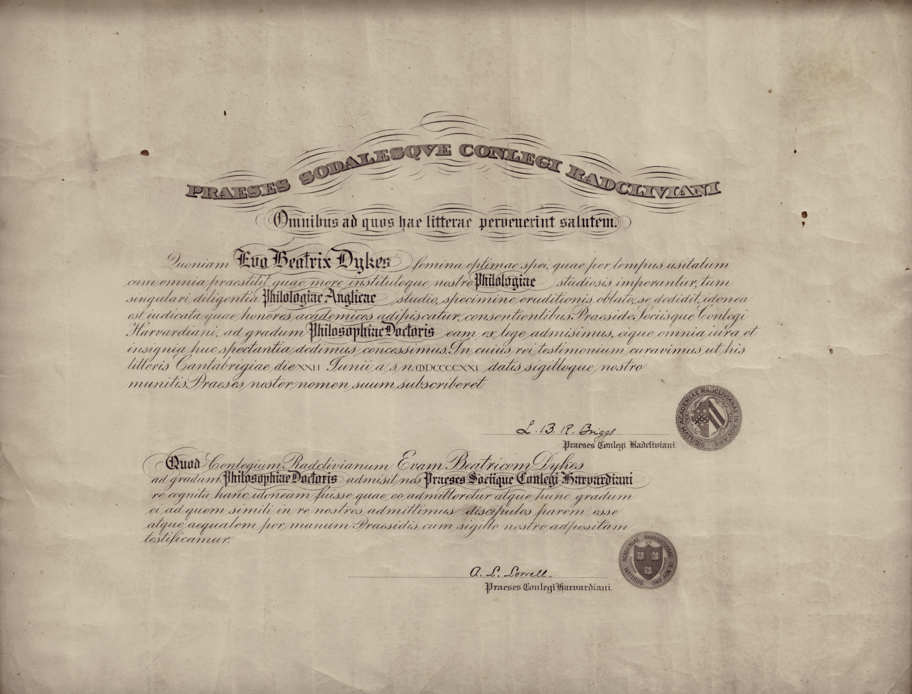 PRAESES SODALESQVE CONLEGI RADCLIVIANI
Omnibus ad quos hae litterae pervenerint salutem.
Quoniam Eva Beatrix Dykes femina optimae spei, quae per tempus usitatum
cum omnia praestitit quae more institutoque nostro Philologiae studiosis imperantur, tum
singulari diligentia Philologiae Anglicae studio, specimine eruditionis oblato, se dedidit, idonea
est iudicata quae honores academicos adipiscatur, consentientibus Praeside Sociisque Conlegi
Harvardiani, ad gradum Philosophiae Doctoris eam ex lege admisimus, eique omnia iura et
insignia huc spectantia dedimus concessimus. In cuius rei testimonium curavimus ut his
litteris Cantabrigiae die XXII Iunii a s n MDCCCCXXI datis sigilloque nostro
munitis Praeses noster nomen suum subscriberet
L. B. R. Briggs
Praeses Conlegi Radcliviani
Quod Conlegium Radclivianum Evam Beatricem Dykes
ad gradum Philosophiae Doctoris admisit nos Praeses Sociique Conlegi Harvardiani
re cognita hanc idoneam fuisse quae eo admitteretur atque hunc gradum
ei ad quem simili in re nostros admittimus discipulos parem esse
atque aequalem per manum Praesidis cum sigillo nostro adpositam
testificamur.
A. L. Lowell
Praeses Conlegi Harvardiani.